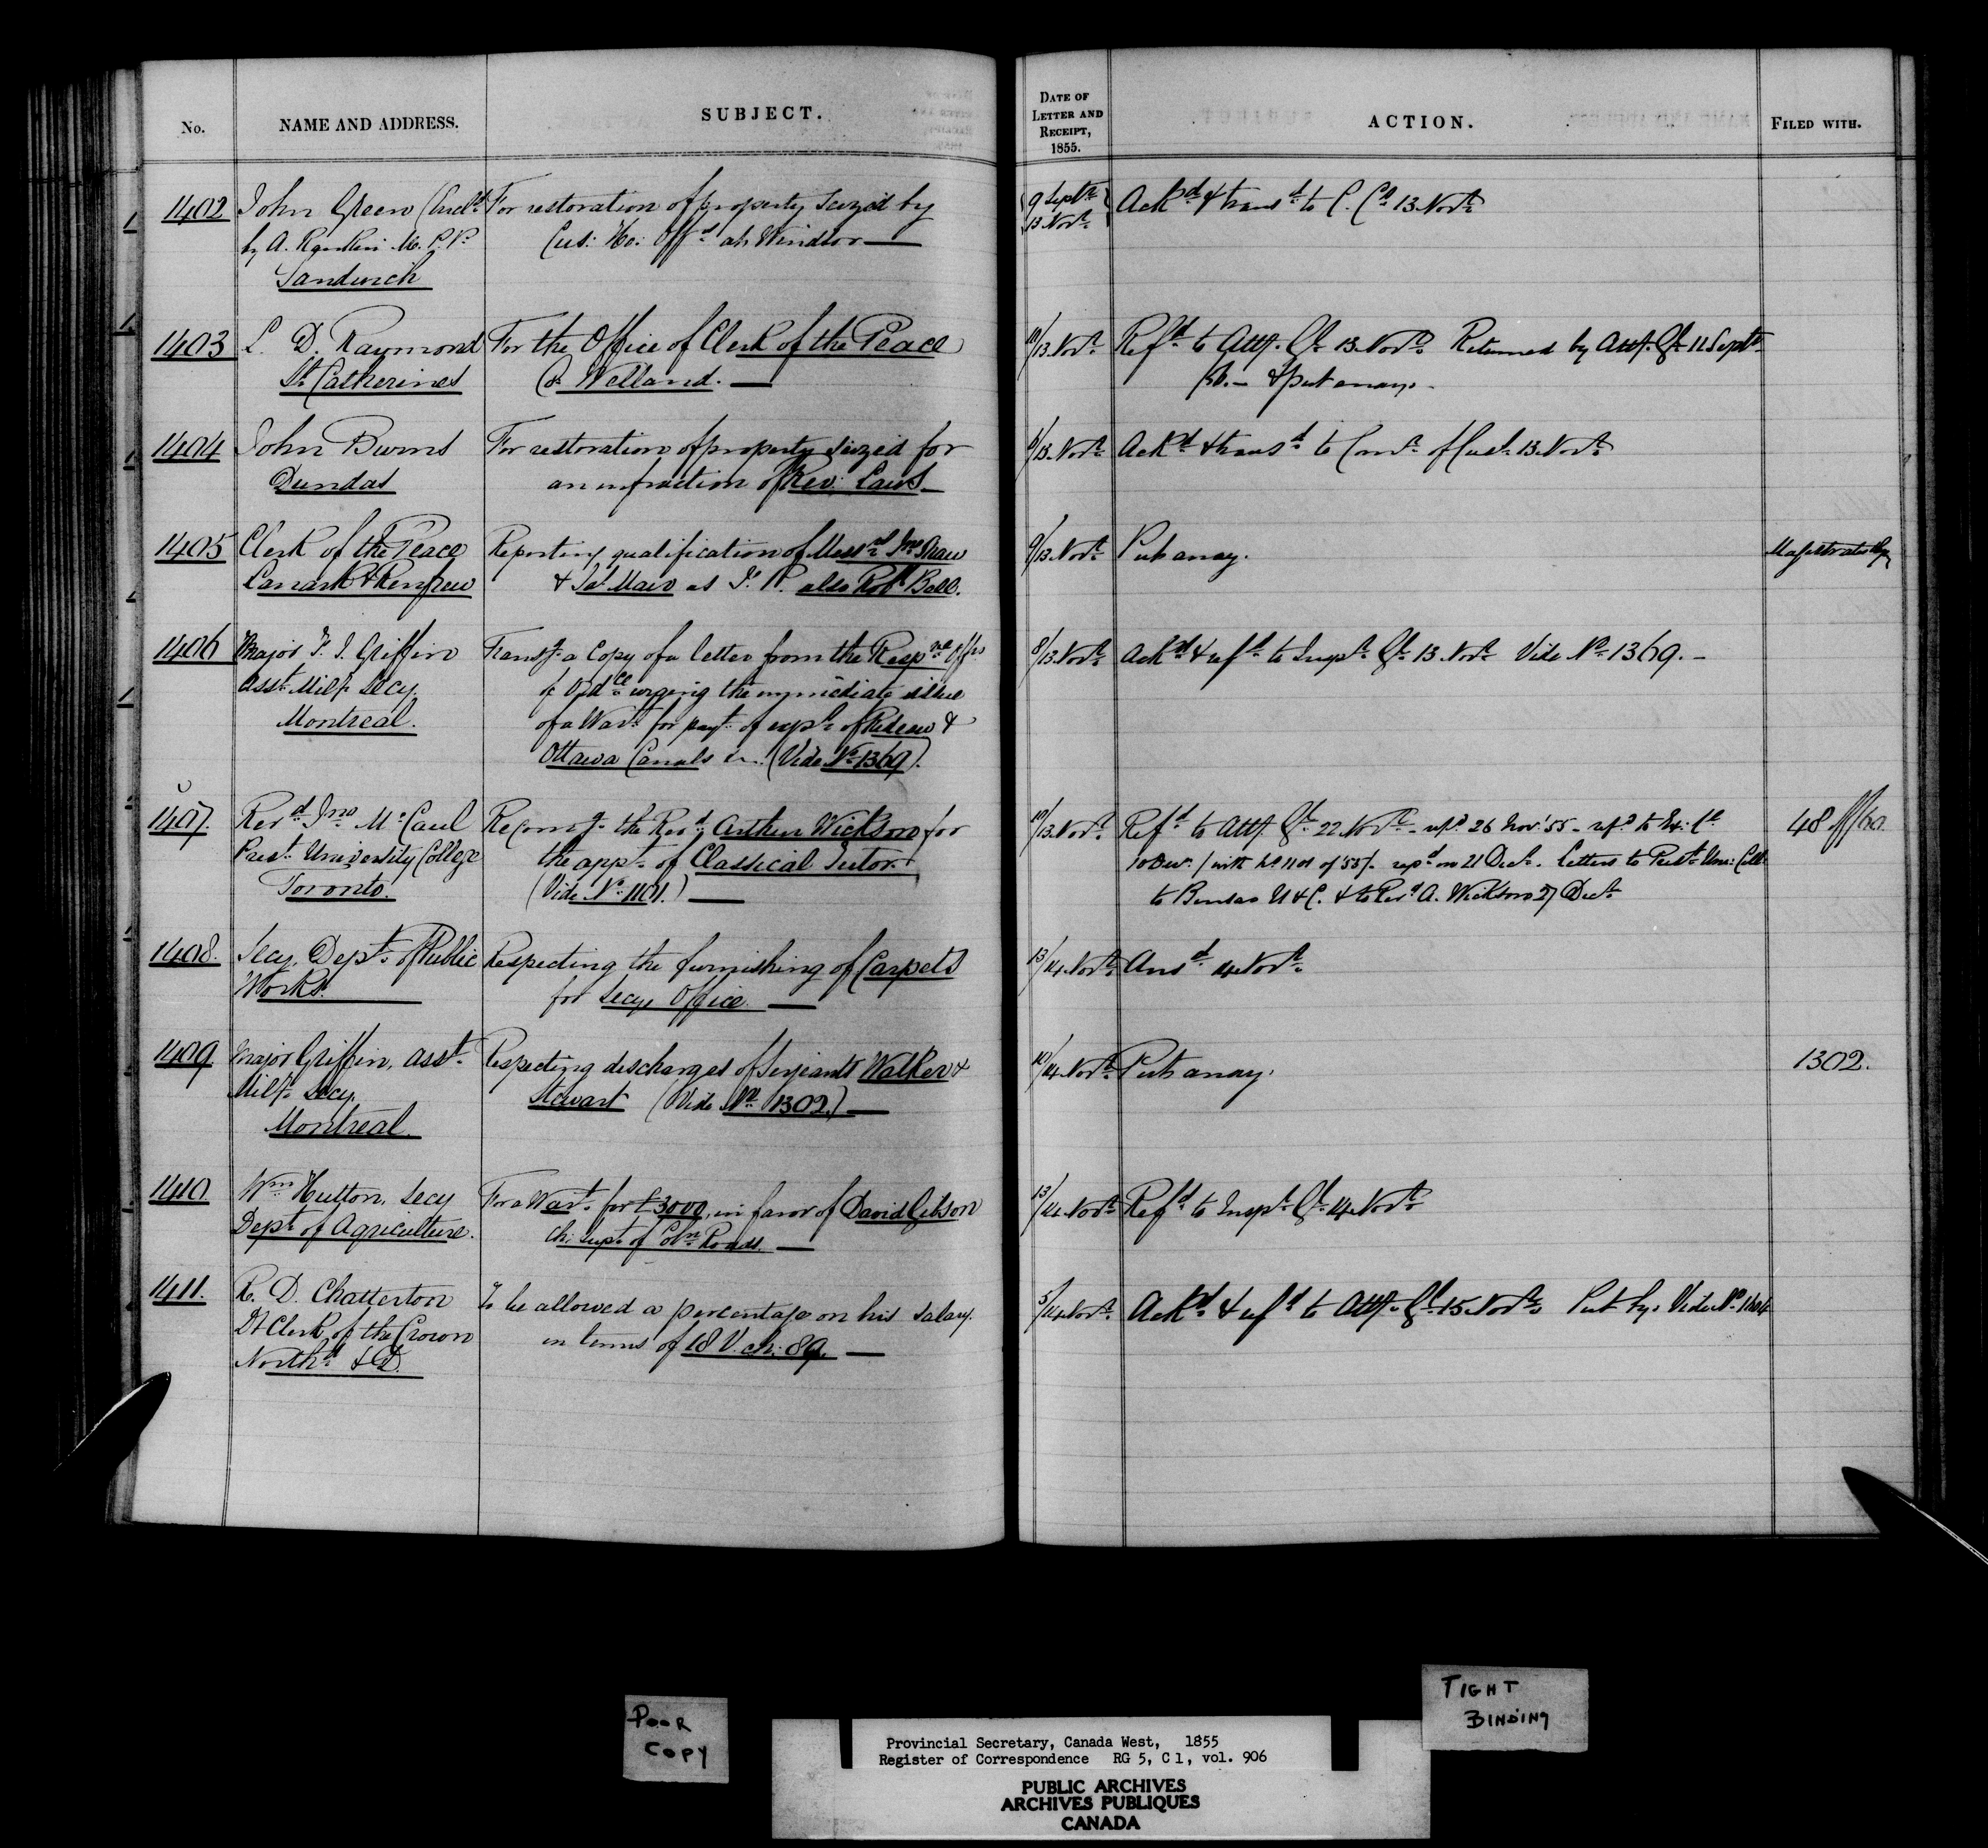 No.
NAME AND ADDRESS.
SUBJECT.
DATE OF
LETTER AND
RECEIPT,
1855.
ACTION.
FILED WITH.
1402
John Green (Incl.d
by A. Rankin M.P.P.
Sandwich
For restoration of property seized by
Cus: Ho: Off.rs at Windsor
9 Septr
13 Novr
Ackd & transd to C. Cs 13 Novr
1403
L. D. Raymond
St Catherines
For the Office of Clerk of the Peace
Co. Welland.
10/13 Novr
Refd to Atty. Gl 13 Novr Returned by Atty. Gl 11 Septr
& put away.
1404
John Burns
Dundas
For restoration of property seized for
an infraction of Rev: Laws
/13 Novr
Ackd & transd to Comr of Cus. 13 Novr
1405
Clerk of the Peace
Lanark & Renfrew
Reporting qualification of Messrs Jno Shaw
& Jas Mair as J. P. also Robt Bell.
9/13 Novr
Put away.
1406
Major F. J. Griffin
Asst Mily Secy.
Montreal.
Transg a Copy of a letter from the Respve Offrs
of Ordce urging the immediate issue
of a Wart for payt of expse of Rideau &
Ottawa Canals &c. (Vide No 1369).
8/13 Novr
Ackd & refd to Inspr Gl 13 Novr Vide No 1369.
1407.
Revd Jno McCaul
Prest University College
Toronto.
Recomg the Revd Arthur Wickson for
the appt of Classical Tutor
(Vide No 1101.)
10/13 Novr
Refd to Atty. Gl 22 Novr - repd 26 Nov '55 - refd to Ex: Cl
10 Decr (with No 1101 of '55). repd on 21 Decr. Letters to Prest Univ: Coll:
to Bursar U & C. & to Revd A. Wickson 27 Decr
48 of /60
1408.
Secy. Dept of Public
Works.
Respecting the furnishing of Carpets
for Secys Office.
13/14 Novr
Ansd 14 Novr
1409.
Major Griffin, Asst
Mily Secy.
Montreal.
Respecting discharges of Serjeants Walker &
Stewart (Vide No 1302.)
10/14 Novr
Put away.
1302.
1410
Wm Hutton, Secy
Dept of Agriculture.
For a Wart for £3000, in favor of David Gibson
Ch: Supt of Coln Roads.
13/14 Novr
Refd to Inspr Gl 14 Novr
1411.
R. D. Chatterton
Dt Clerk of the Crown
Northd & D.
To be allowed a percentage on his salary
in terms of 18 V. ch: 89.
5/14 Novr
Ackd & refd to Atty. Gl 15 Novr Put by. Vide No 1604
POOR
COPY
TIGHT
BINDING
Provincial Secretary, Canada West, 1855
Register of Correspondence RG 5, C 1, vol. 906
PUBLIC ARCHIVES
ARCHIVES PUBLIQUES
CANADA